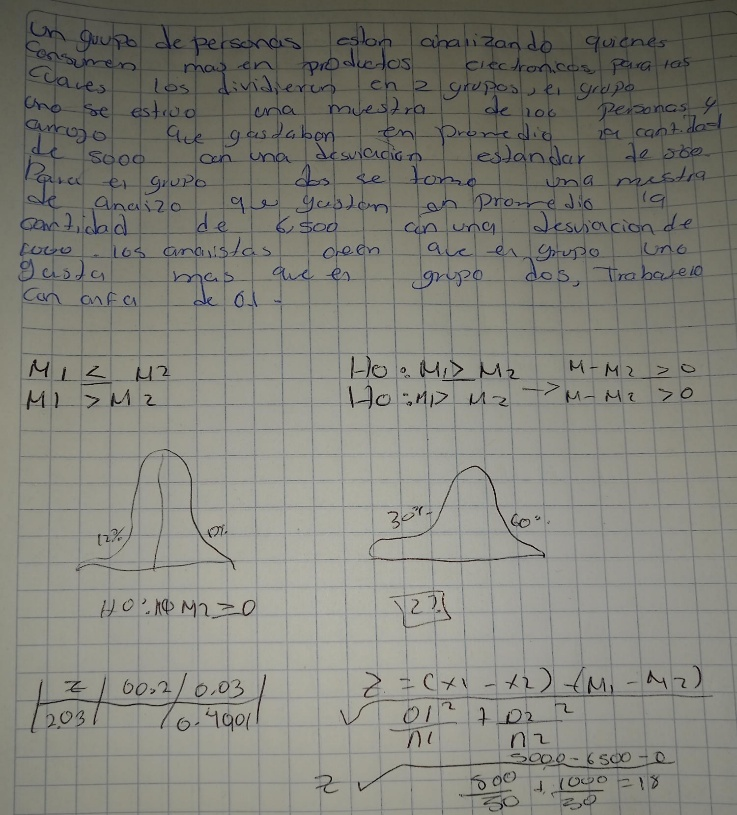 un guupo de personas estan analizando quienes
consumen mas en productos electronicos para las
cuaves los dividieren en 2 grupos, el grupo
uno se estivo una muestra de 106 personas y
arrogo que gastaban en promedio la cantidad
de 5000 con una desviacion estandar de
Para el grupo dos se tomo una mestra
de anaizo que gastan en promedio la
cantidad de 6,500 con una desviacion de
los analistas creen que el grupo uno
gasta mas que el grupo dos, Trabajelo
con anfa de 0.1 -
M1 ≤ M2
M1 > M2
Ho : M1 ≥ M2
Ho : M1 > M2 → M-M2 ≥ 0
M-M2 > 0
12%
30%
60%
Ho : M2 ≥ 0
2%
z 00.2 0.03
2.03 0.4901
Z = (x1 - x2) - (M1 - M2)
√ σ1² + σ2²
n1 n2
5000 - 6500 - 0
Z √ 500 + 1000 = 18
30 30